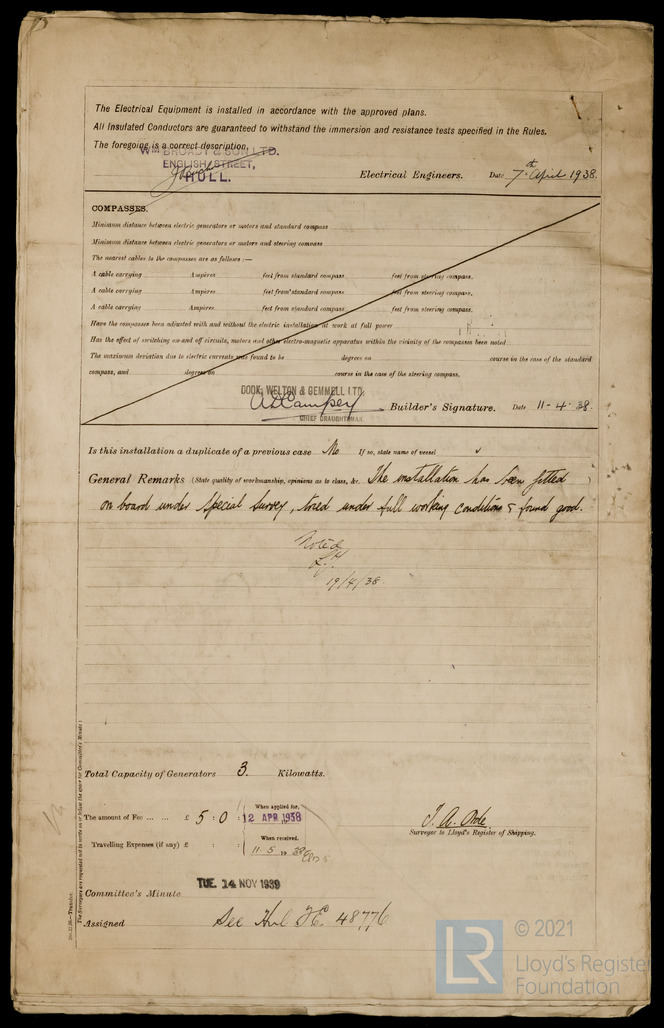 The Electrical Equipment is installed in accordance with the approved plans.
All Insulated Conductors are guaranteed to withstand the immersion and resistance tests specified in the Rules.
The foregoing is a correct description,
WM BROADY & SON LTD.
ENGLISH STREET,
HULL.
Electrical Engineers. Date 7th April 1938.
COMPASSES.
Minimum distance between electric generators or motors and standard compass
Minimum distance between electric generators or motors and steering compass
The nearest cables to the compasses are as follows:—
A cable carrying Ampères feet from standard compass feet from steering compass.
A cable carrying Ampères feet from standard compass feet from steering compass.
A cable carrying Ampères feet from standard compass feet from steering compass.
Have the compasses been adjusted with and without the electric installation at work at full power
Has the effect of switching on and off circuits, motors and other electro-magnetic apparatus within the vicinity of the compasses been noted
The maximum deviation due to electric currents was found to be degrees on course in the case of the standard
compass, and degrees on course in the case of the steering compass.
COOK, WELTON & GEMMELL LTD.
Builder's Signature. Date 11-4-38.
CHIEF DRAUGHTSMAN.
Is this installation a duplicate of a previous case No If so, state name of vessel
General Remarks (State quality of workmanship, opinions as to class, &c. The installation has been fitted )
on board under Special Survey, tried under full working conditions & found good.
Noted
19/4/38.
Total Capacity of Generators 3. Kilowatts.
The amount of Fee ... ... £ 5 : 0 : When applied for, 12 APR 1938
Travelling Expenses (if any) £ : : When received, 11.5.1938
Surveyor to Lloyd's Register of Shipping.
TUE. 14 NOV 1939
Committee's Minute
Assigned See Hul J.E. 48776
The Surveyors are requested not to write on or below the space for Committee's Minute.
LR
© 2021
Lloyd's Register
Foundation